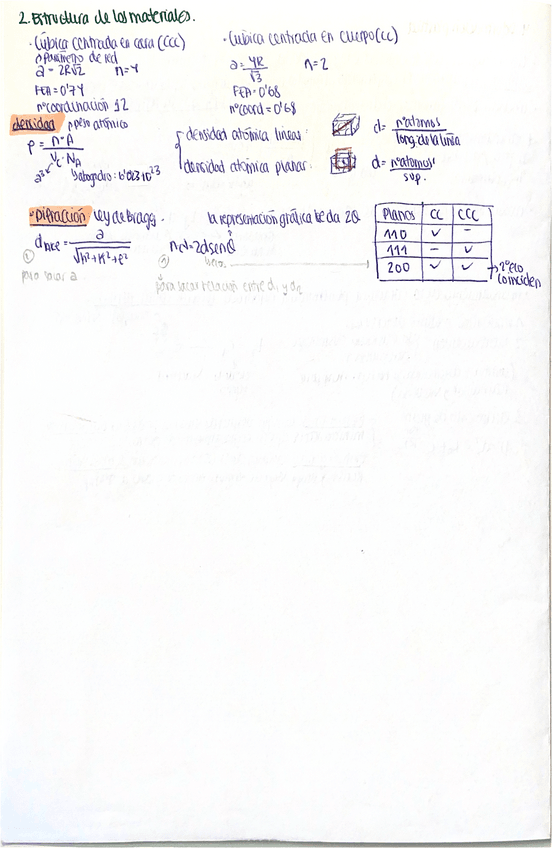 2. Estructura de los materiales.
· Cúbica centrada en cara (CCC)
parámetro de red
a = 2R√2 n=4
FEA = 0'74
nºcoordinación 12
· Cúbica centrada en cuerpo (cc)
a = 4R/√3 n=2
FEA = 0'68
nºcoord = 0'68
densidad peso atómico
ρ = n·A / Vc·NA
a³ Yabogadro: 6'023 10²³
densidad atómica lineal: d = nºatomos / long. de la línea
densidad atómica planar: d = nºatomos / sup.
· Difracción ley de Bragg. la representación gráfica te da 2θ
dhkl = a / √h²+k²+l²
nλ=2dsenθ
① para sacar a
para sacar relación entre d₁ y d₂
Planos CC CCC
110 ✓ –
111 – ✓
200 ✓ ✓ → 2º eco coinciden